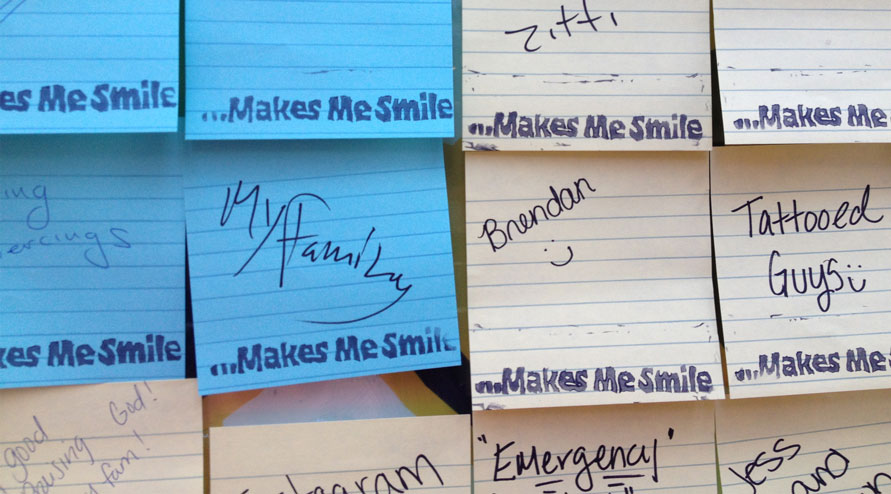 es Me Smile
...Makes Me Smile
zitti
...Makes Me Smile
...Makes Me
ing
ercings
kes Me Smile
My Family
...Makes Me Smile
Brendan
:)
...Makes Me Smile
Tattooed
Guys :)
...Makes Me S
good
God!
fam!
agram
"Emergency"
Jess
and